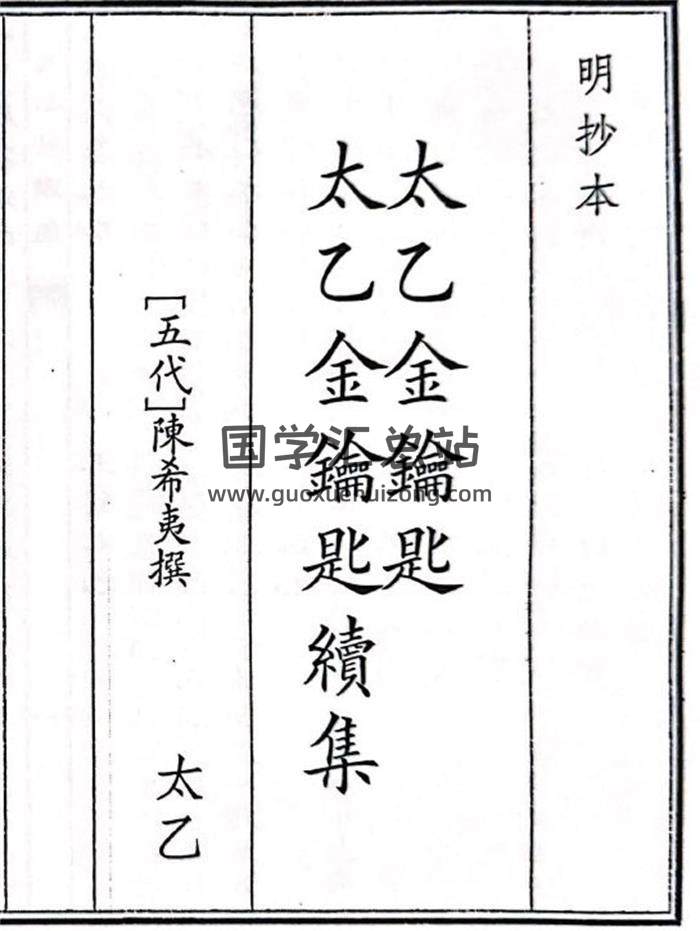 明抄本
太乙金鑰匙
太乙金鑰匙續集
[五代]陳希夷撰
太乙
国学汇总站
www.guoxuehuizong.com